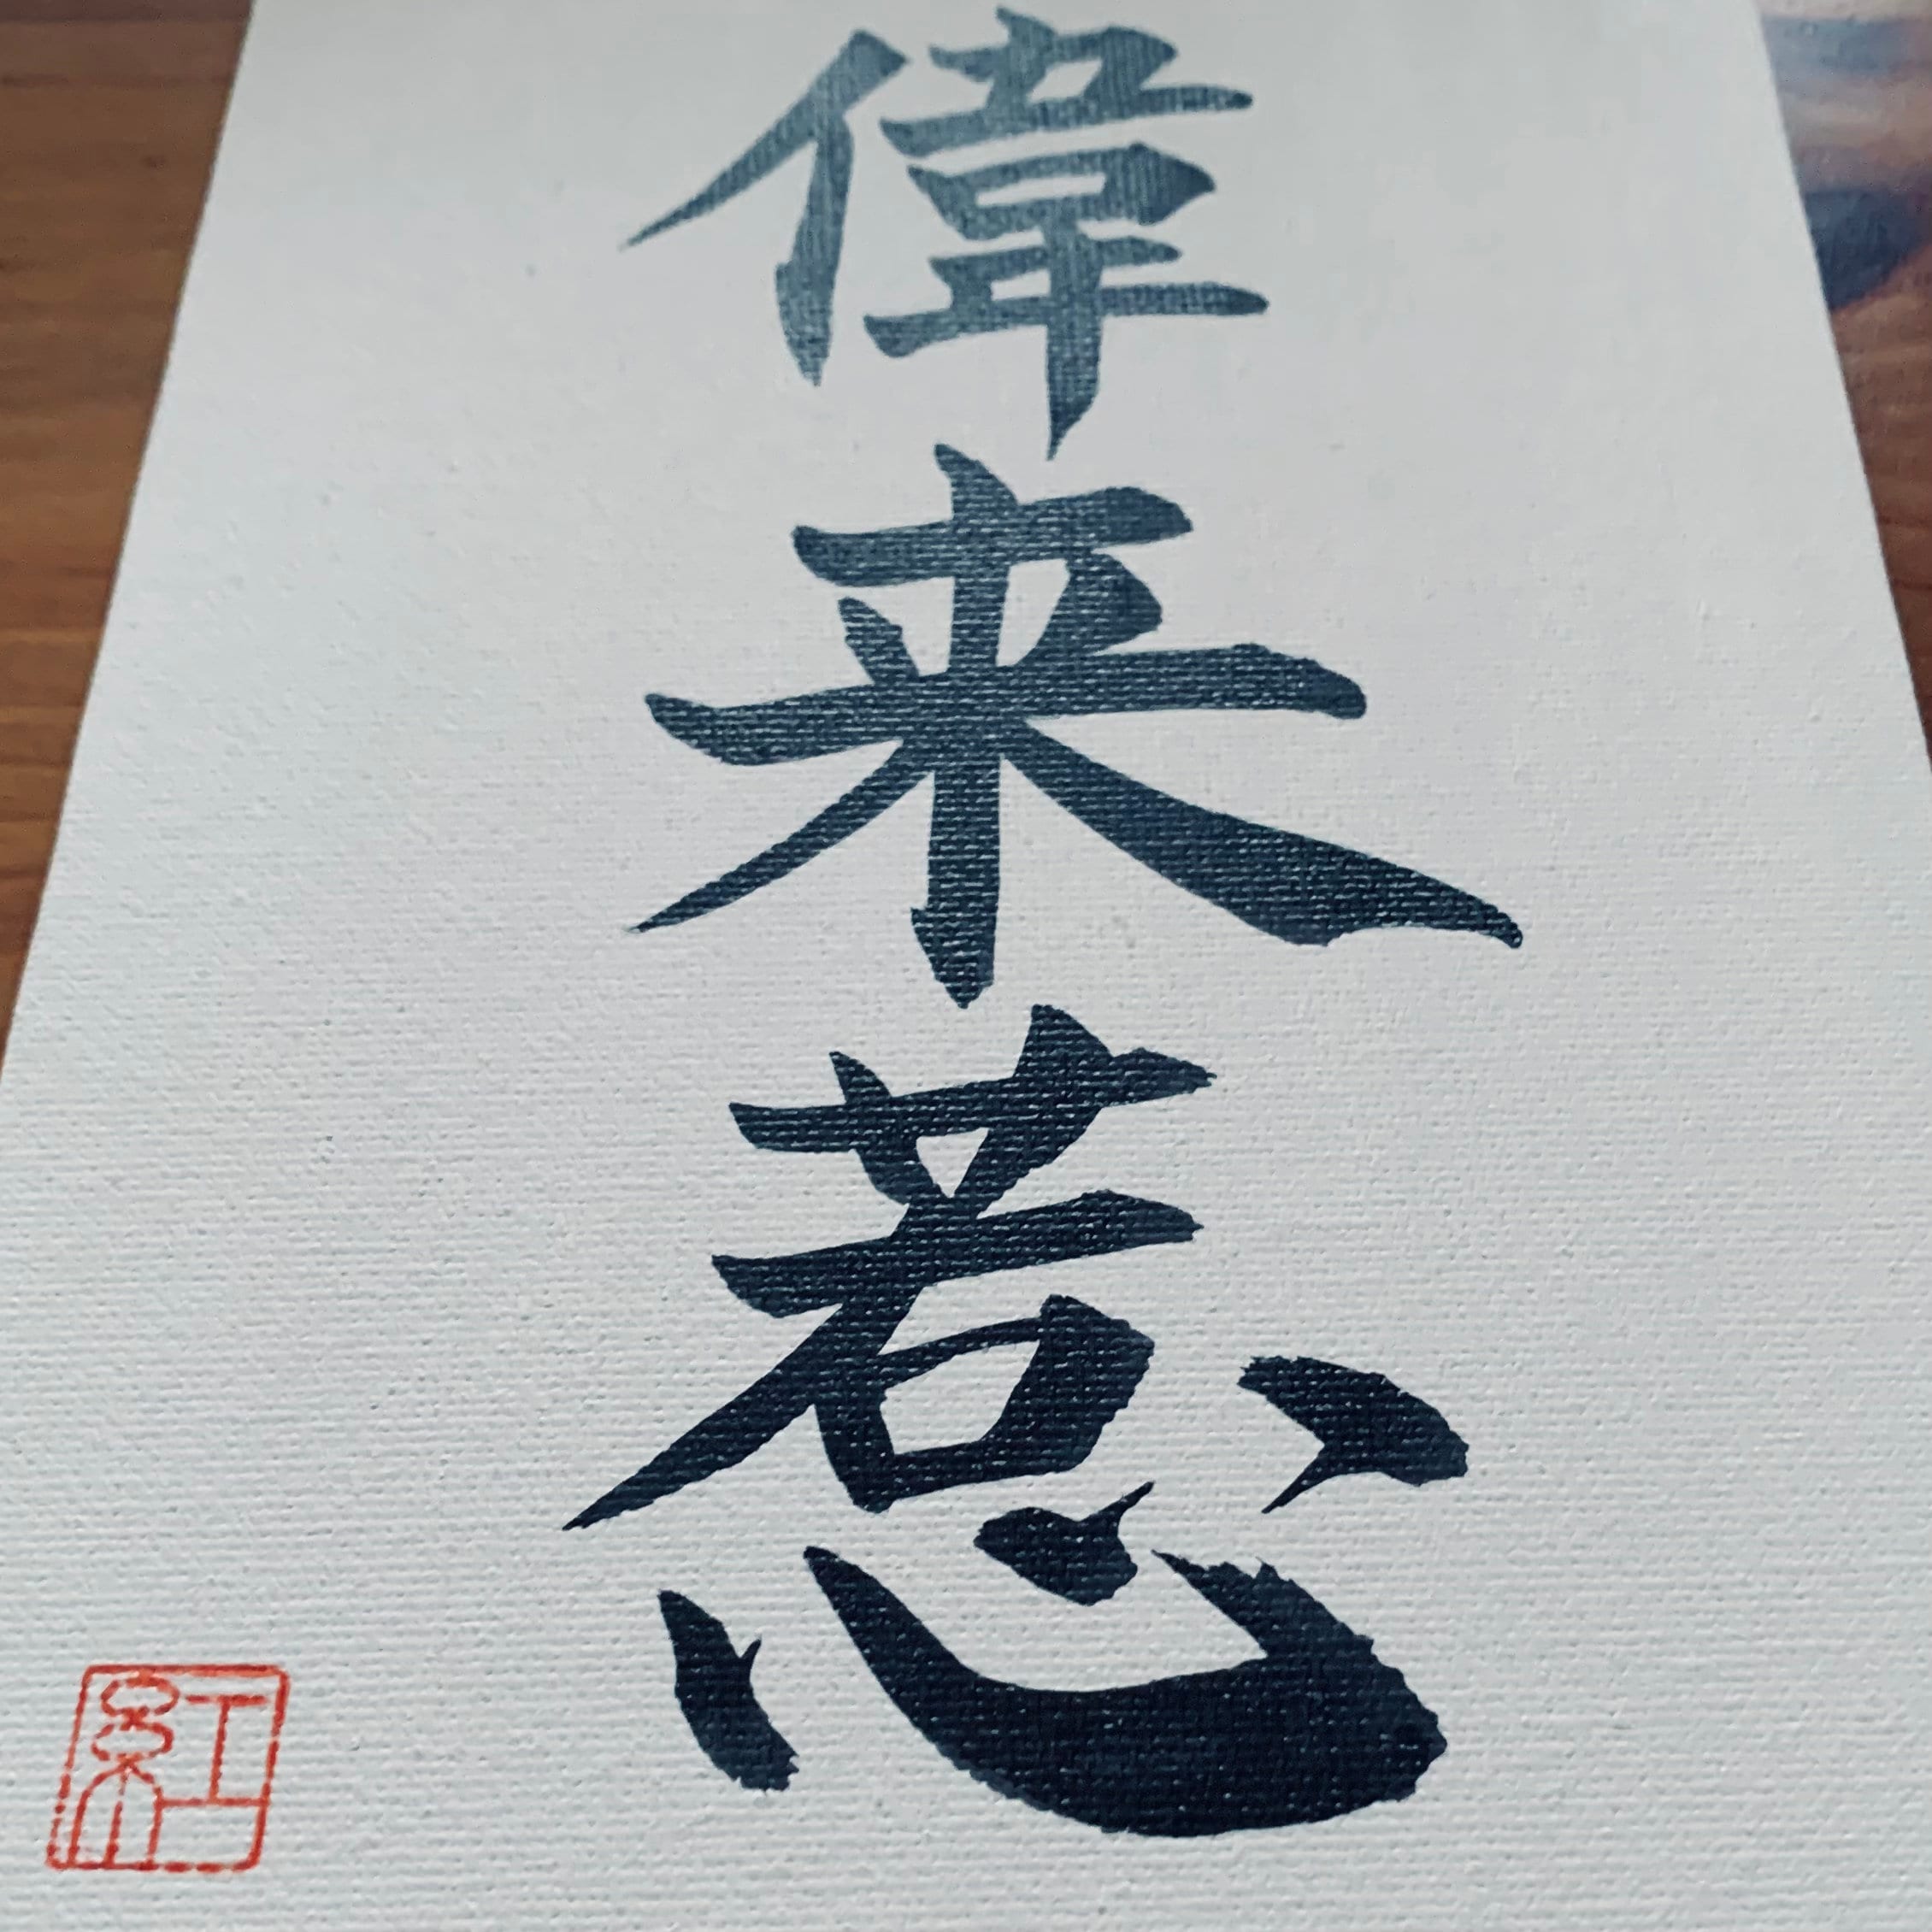 偉来惹
紅